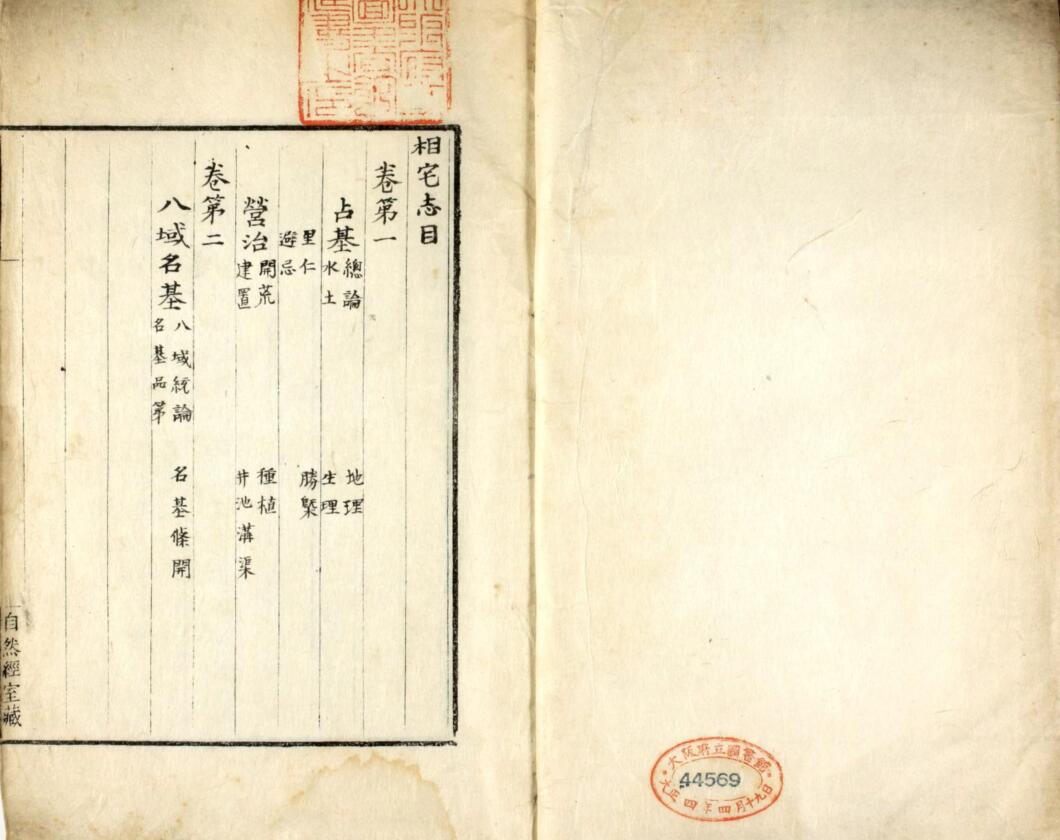 相宅志目
卷第一
占基 總論 地理
水土 生理
里仁 勝槩
避忌
營治 開荒 種植
建置 井池溝渠
卷第二
八域名基 八域統論 名基條開
名基品第
自然經室藏
大阪府立圖書館
44569
大正四年四月十九日